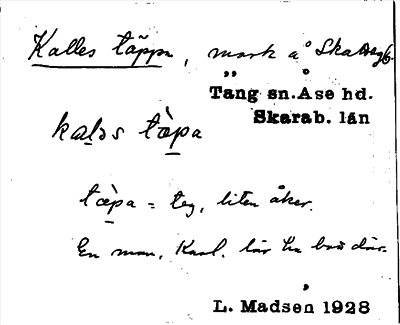 Kalles täppa, mark å Skattegb.
Täng sn. Åse hd.
Skarab. län
kaləs tæ̀pa
tæ̀pa = teg, liten åker.
En man, Karl, lär ha bott där.
L. Madsen 1928